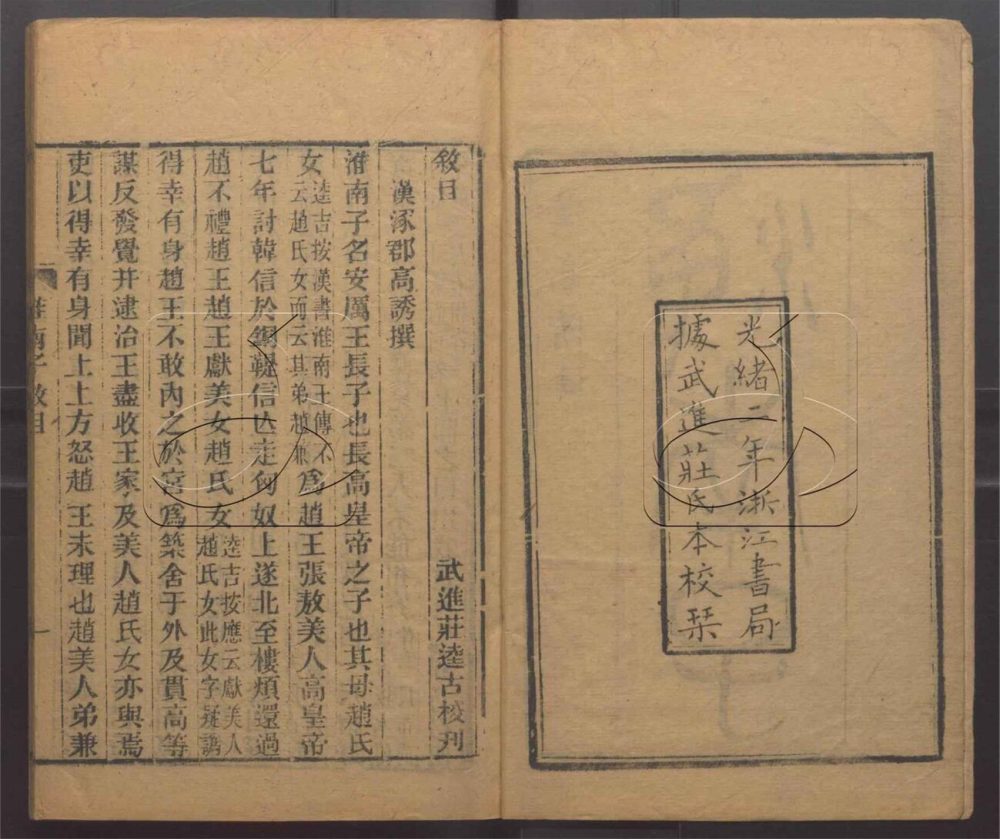 光緒二年浙江書局
據武進莊氏本校栞
敘目
武進莊逵吉校刊
漢涿郡高誘撰
淮南子名安厲王長子也長高皇帝之子也其母趙氏
女逵吉按漢書淮南王傳不云趙氏女而云其弟趙兼為趙王張敖美人高皇帝
七年討韓信於銅鞮信亾走匈奴上遂北至樓煩還過
趙不禮趙王趙王獻美女趙氏女逵吉按應云獻美人趙氏女此女字疑譌
得幸有身趙王不敢內之於宮為築舍于外及貫高等
謀反發覺并逮治王盡收王家及美人趙氏女亦與焉
吏以得幸有身聞上上方怒趙王未理也趙美人弟兼
淮南子 敘目 一